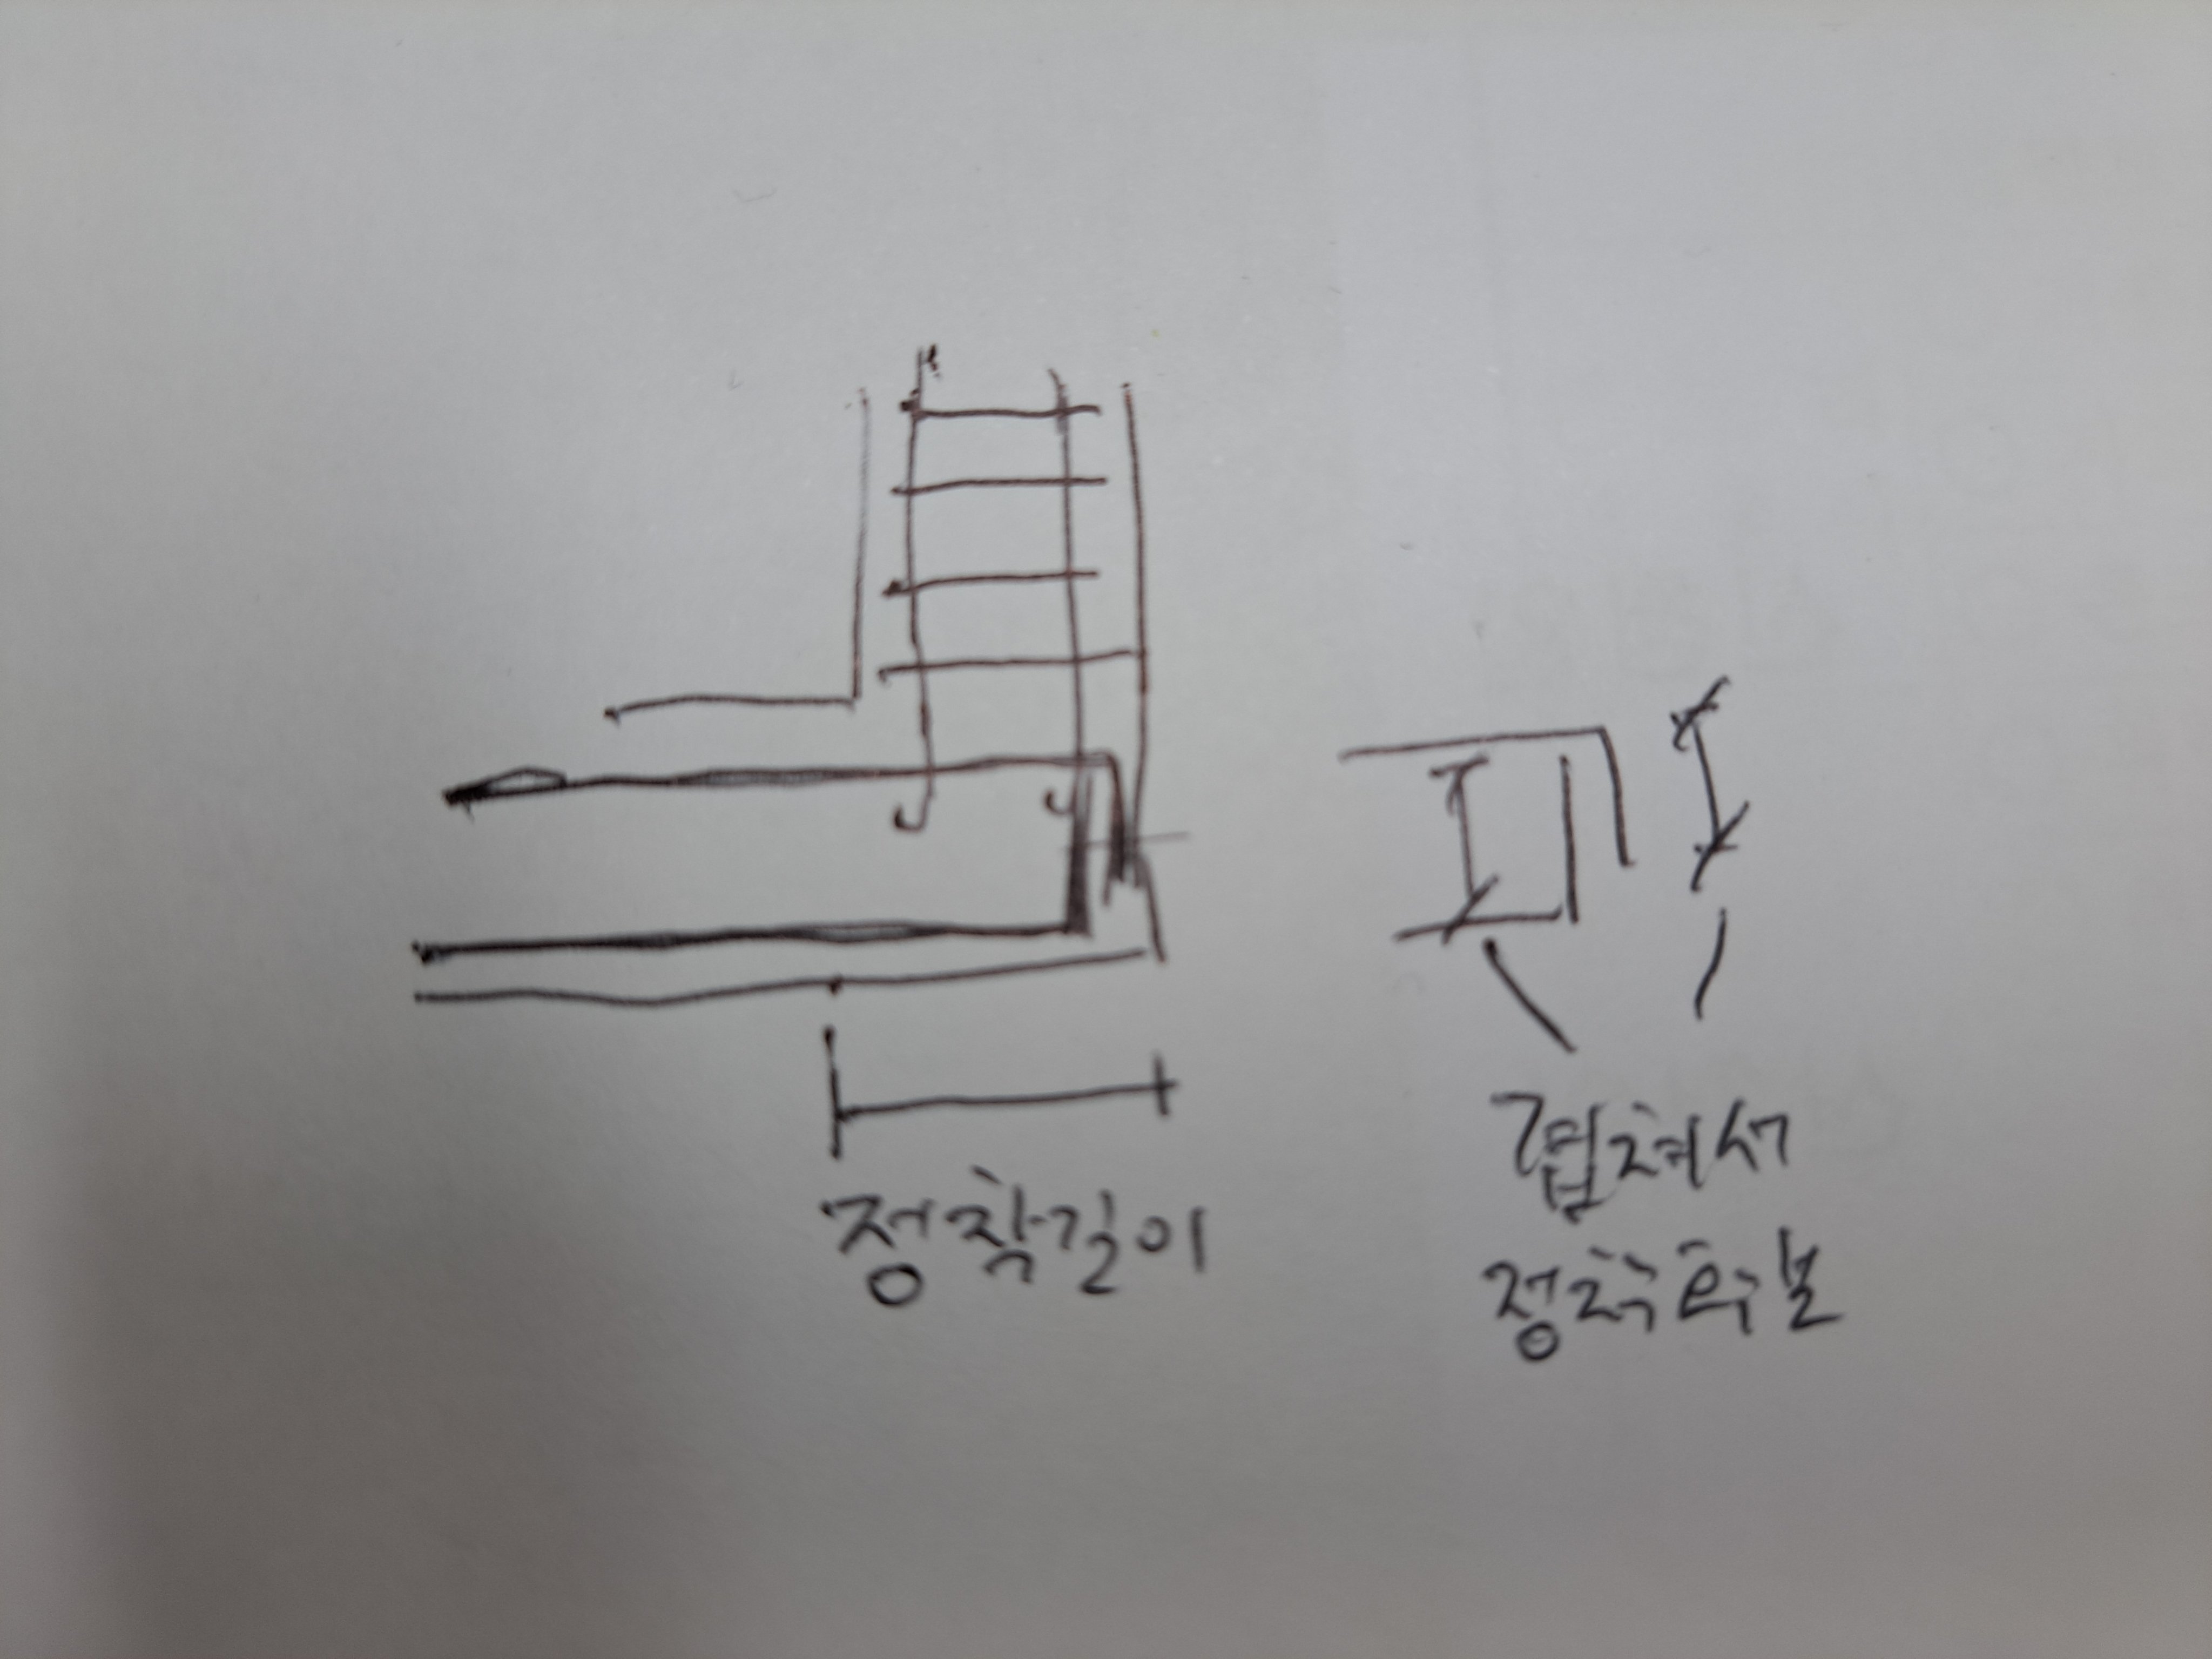 정착길이
겹쳐서
정착확보